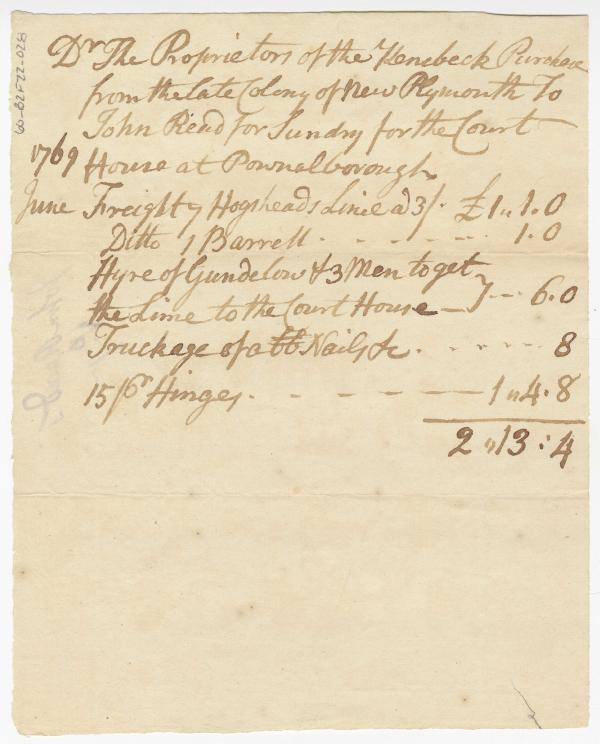 Dr The Proprietors of the Kenebeck Purchase
from the late Colony of New Plymouth To
John Read for Sundry for the Court
1769 House at Pownalborough
June Freight 7 Hogsheads Lime a 3/. £1 „ 1. 0
Ditto 1 Barrell . - - - - - 1. 0
Hyre of Gundelow & 3 Men to get
the Lime to the Court House — } -- 6. 0
Truckage of a bb Nails &c . - - - - 8
15 pr Hinges . - - - — 1 „ 4. 8
2 „ 13 : 4
60-82F22-028